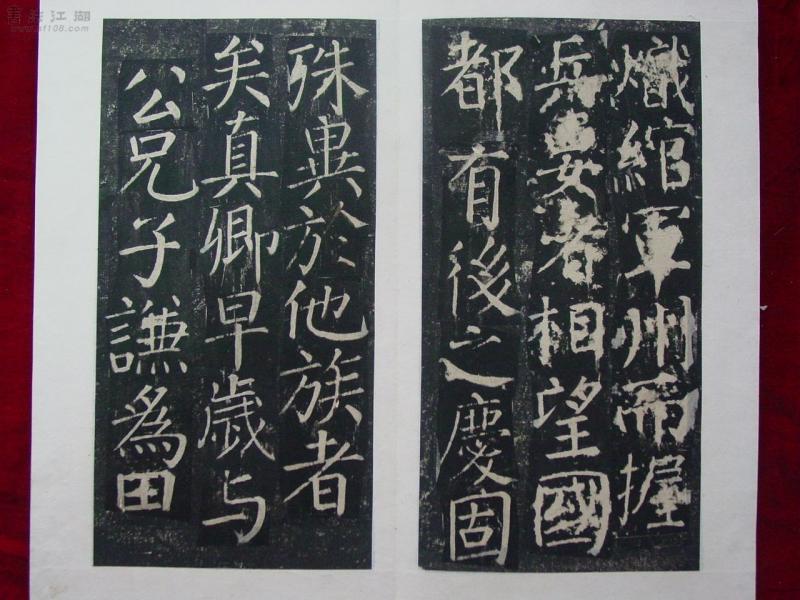 熾綰軍州而握
兵要者相望國
都有後之慶固
殊異於他族者
矣真卿早歲与
公兄子謙為田
書法江湖
www.sf108.com